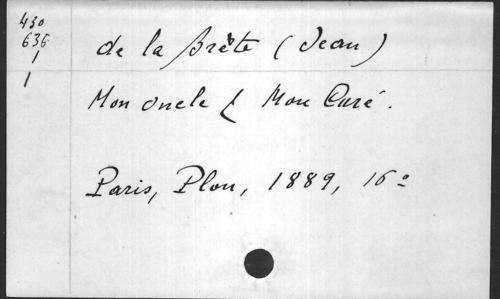 430
636
1
1
de la Brète (Jean)
Mon oncle & Mon Curé.
Paris, Plon, 1889, 16º